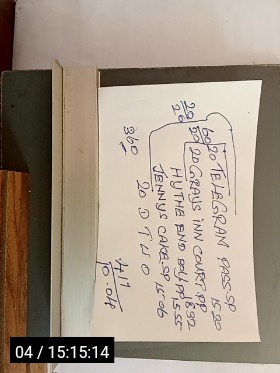 60 20 TELEGRAM PASS.SP 15.20
29 50 20 GRAYS INN COURT.PP 8.32
20 HYTHE END BOY.PP 15.55
JENNYS CAKE.SP 15.06
360 20 D T W O
4/1
10.04
04 / 15:15:14